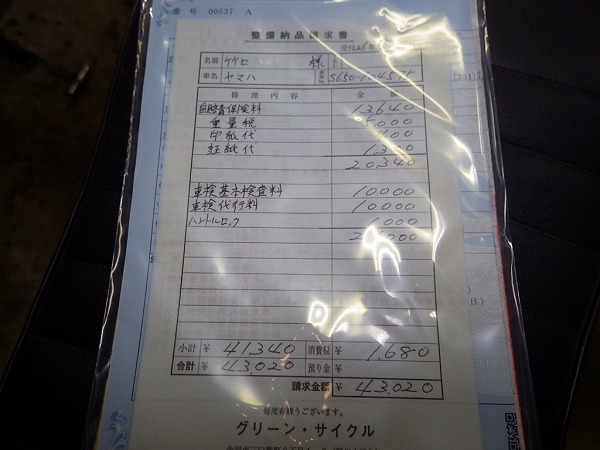 番号 00537 A
整備納品請求書
名前 ケケロ 様
車名 ヤマハ
修理内容 金額
自賠責保険料 13,640
重量税 5,000
印紙代 400
証紙代 1,300
20,340
車検基本検査料 10,000
車検代行料 10,000
ハンドルロック 1,000
21,000
小計 ¥ 41,340 消費税 ¥ 1,680
合計 ¥ 43,020 預り金 ¥
請求金額 ¥ 43,020
毎度有難うございます。
グリーン・サイクル